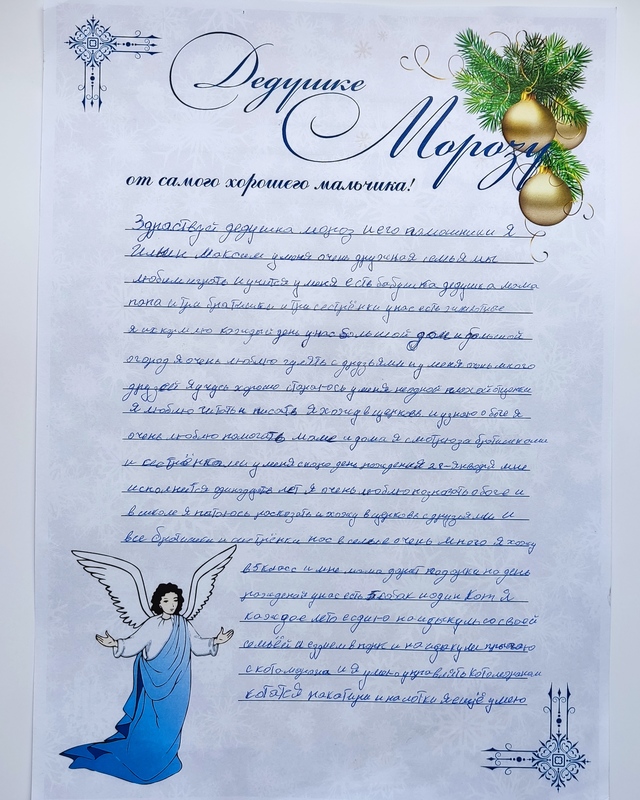 Дедушке
Морозу
от самого хорошего мальчика!
Здраствуй дедушка мороз и его помошники Я
Ильин Максим у меня очень дружная семья мы
любим играть и учится у меня есть бабушка дедушка мама
папа и три братишки и три сестрёнки у нас есть животные
я их кормлю каждый день у нас большой дом и большой
огород я очень люблю гулять с друзьями и у меня очень много
друзей Я учусь хорошо стараюсь у меня не одной плохой оценки
Я люблю читать и писать Я хожу в церковь и узнаю о боге Я
очень люблю помогать маме и дома Я смотрю за братишками
и сестрёнками у меня скоро день рождения 28-Января мне
исполнется одинадцать лет Я очень люблю познавать о боге и
в школе Я пытаюсь расказать и хожу в церковь с друзьями и
все братишки и сестрёнки нас в семье очень много Я хожу
в 5 класс и мне мама дарит подарки на день
рождения у нас есть 5 собак и один Кот Я
каждое лето ездию на со своей
семьёй и ездием в парк и на прыгаю
с котамарана и Я умею управлять котомораном
кататся на и на лотки Я ещё умею